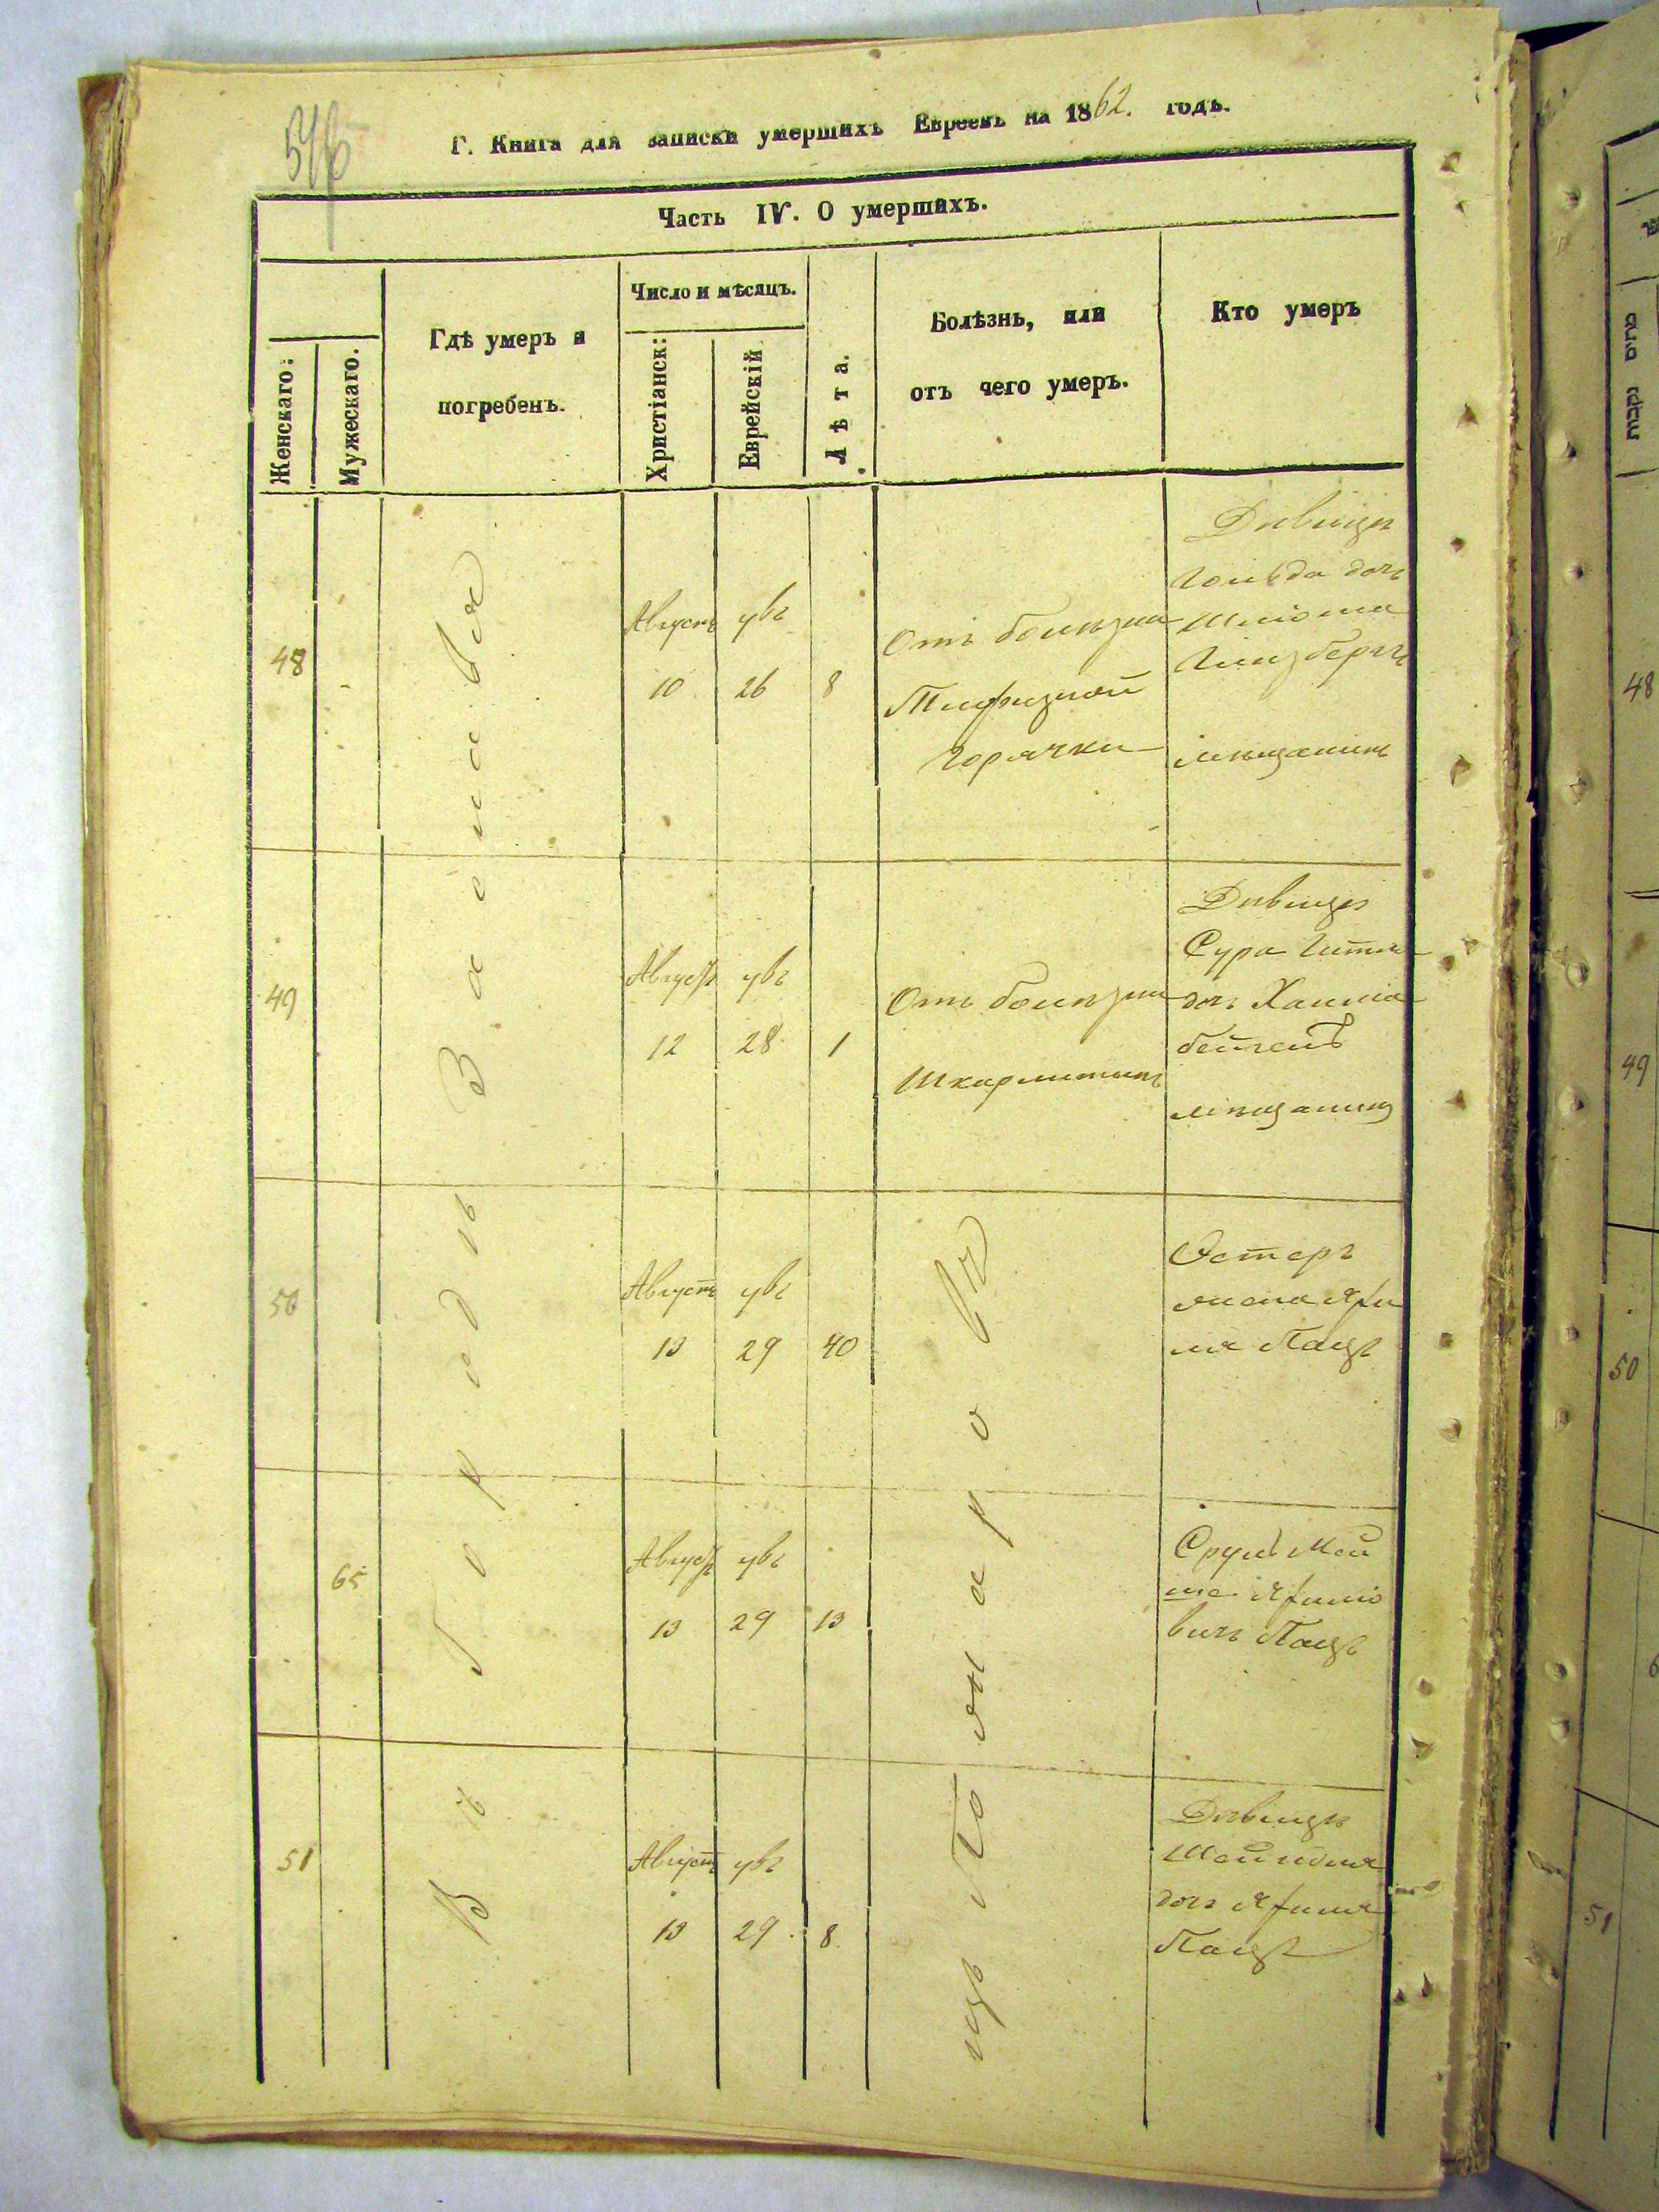 546
Г. Книга для записки умершихъ Евреевъ на 1862. годъ.
Часть IV. О умершихъ.
Женскаго:
Мужескаго.
Гдѣ умеръ и
погребенъ.
Число и мѣсяцъ.
Христіанск:
Еврейскій
Лѣта.
Болѣзнь, или
отъ чего умеръ.
Кто умеръ
Въ Городѣ
48
Августъ
10
увъ
26
8
Отъ болѣзни
Тифизной
горячки
Дѣвица
Гольда дочь
Шліома
Гинзбергъ
мѣщанинъ
49
Август
12
увъ
28
1
Отъ болѣзни
Шкарлатинъ
Дѣвица
Сура Гитля
дочь Хаима
мѣщанинъ
50
Августъ
13
увъ
29
40
Пожаровъ
Остеръ
жена
Пацъ
65
Август
13
увъ
29
13
Сруль Мой
ше
вичъ Пацъ
51
Августъ
13
увъ
29
8
Дѣвица
Шейндля
дочь
Пацъ
מתים
נקבות
48
49
50
51